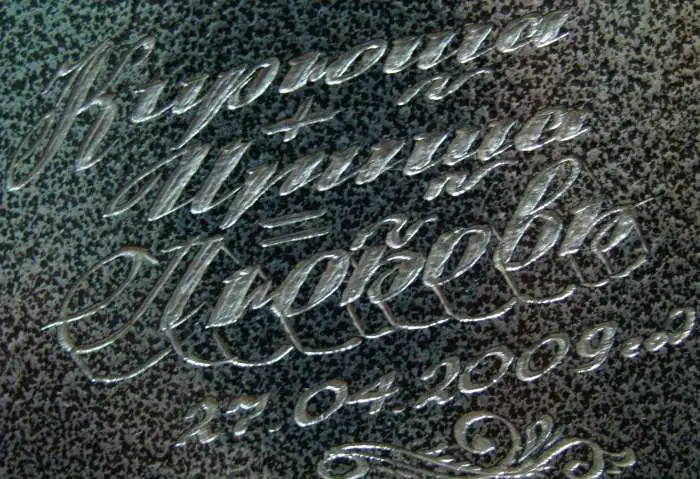 Кирюша
+
Ириша
=
Любовь
27.04.2009г.